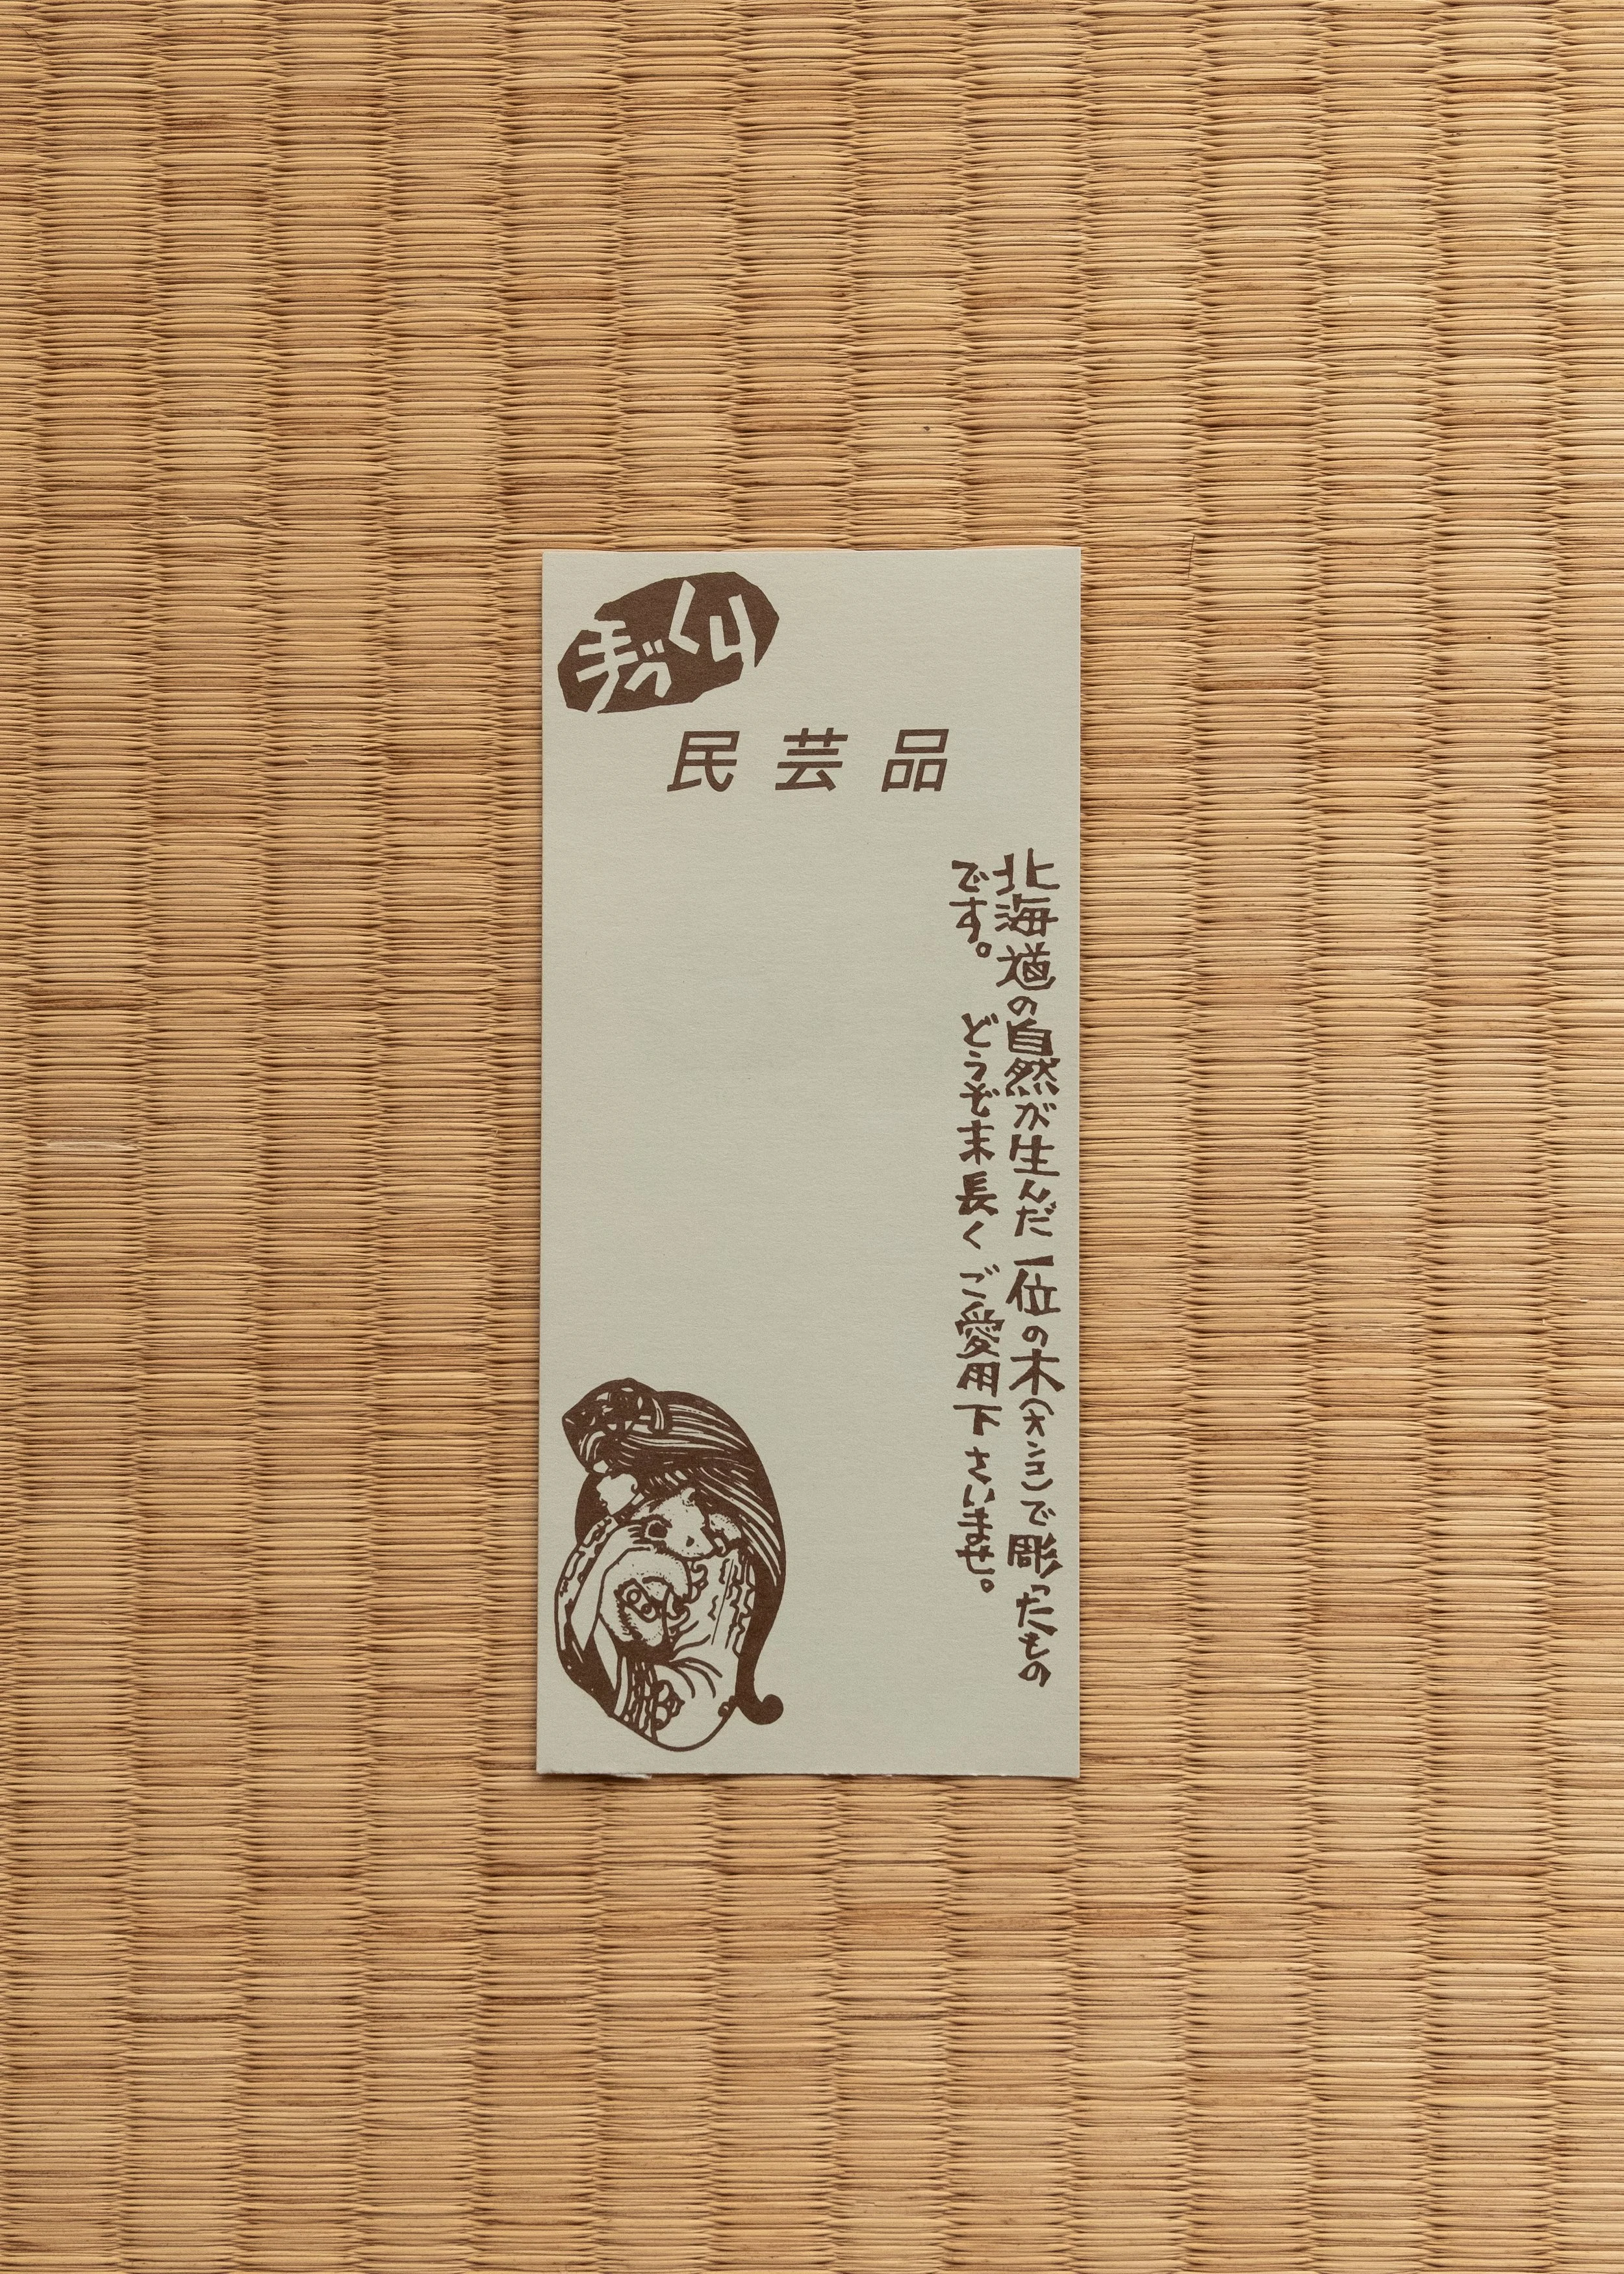 手づくり
民芸品
北海道の自然が生んだ一位の木(オンコ)で彫ったもの
です。 どうぞ末長くご愛用下さいませ。